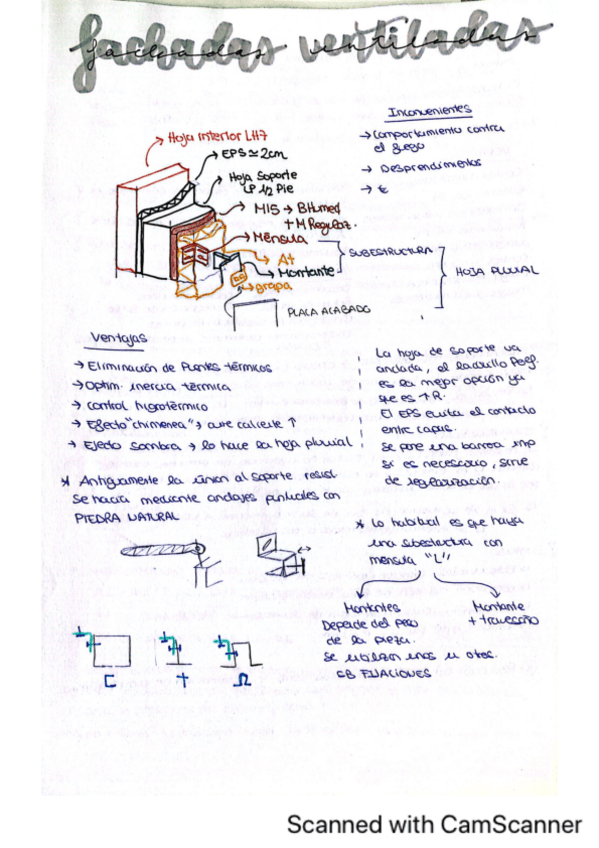 fachadas ventiladas
Inconvenientes
→ Comportamiento contra
el fuego
→ Desprendimientos
→ €
→ Hoja interior LH7
→ EPS ≃ 2cm
→ Hoja Soporte
LP 1/2 Pie
→ MIS → BHumed
+ M Regulaz.
→ Ménsula
→ At
→ Montante
→ grapa
SUBESTRUCTURA
HOJA PLUVIAL
PLACA ACABADO
Ventajas
→ Eliminación de Puentes térmicos
→ Optim. inercia térmica
→ Control higrotérmico
→ Efecto "chimenea", aire caliente ↑
→ Efecto Sombra → lo hace la hoja pluvial
* Antiguamente la unión al soporte resist.
se hacía mediante anclajes puntuales con
PIEDRA NATURAL
La hoja de soporte va
anclada, el ladrillo Perf.
es la mejor opción ya
que es +R.
El EPS evita el contacto
entre capas.
Se pone una barrera imp
si es necesario, sirve
de regularización.
* Lo habitual es que haya
una subestructura con
mensula "L"
Montantes
Depende del peso
de la pieza.
Se utilizan unos u otros.
Montante
+ travesaño
C
T
Ω
Scanned with CamScanner